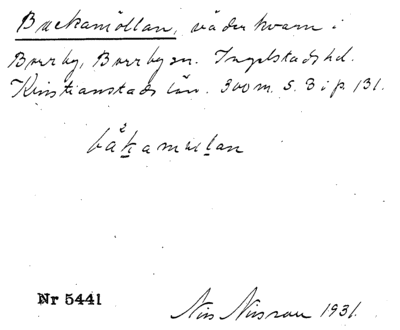 Buckamöllan, väderkvarn i
Borrby, Borrby sn. Ingelstads hd.
Kristianstads län. 300 m. S. B i p. 131.
båkamulan
Nr 5441
Nils Nilsson 1931.